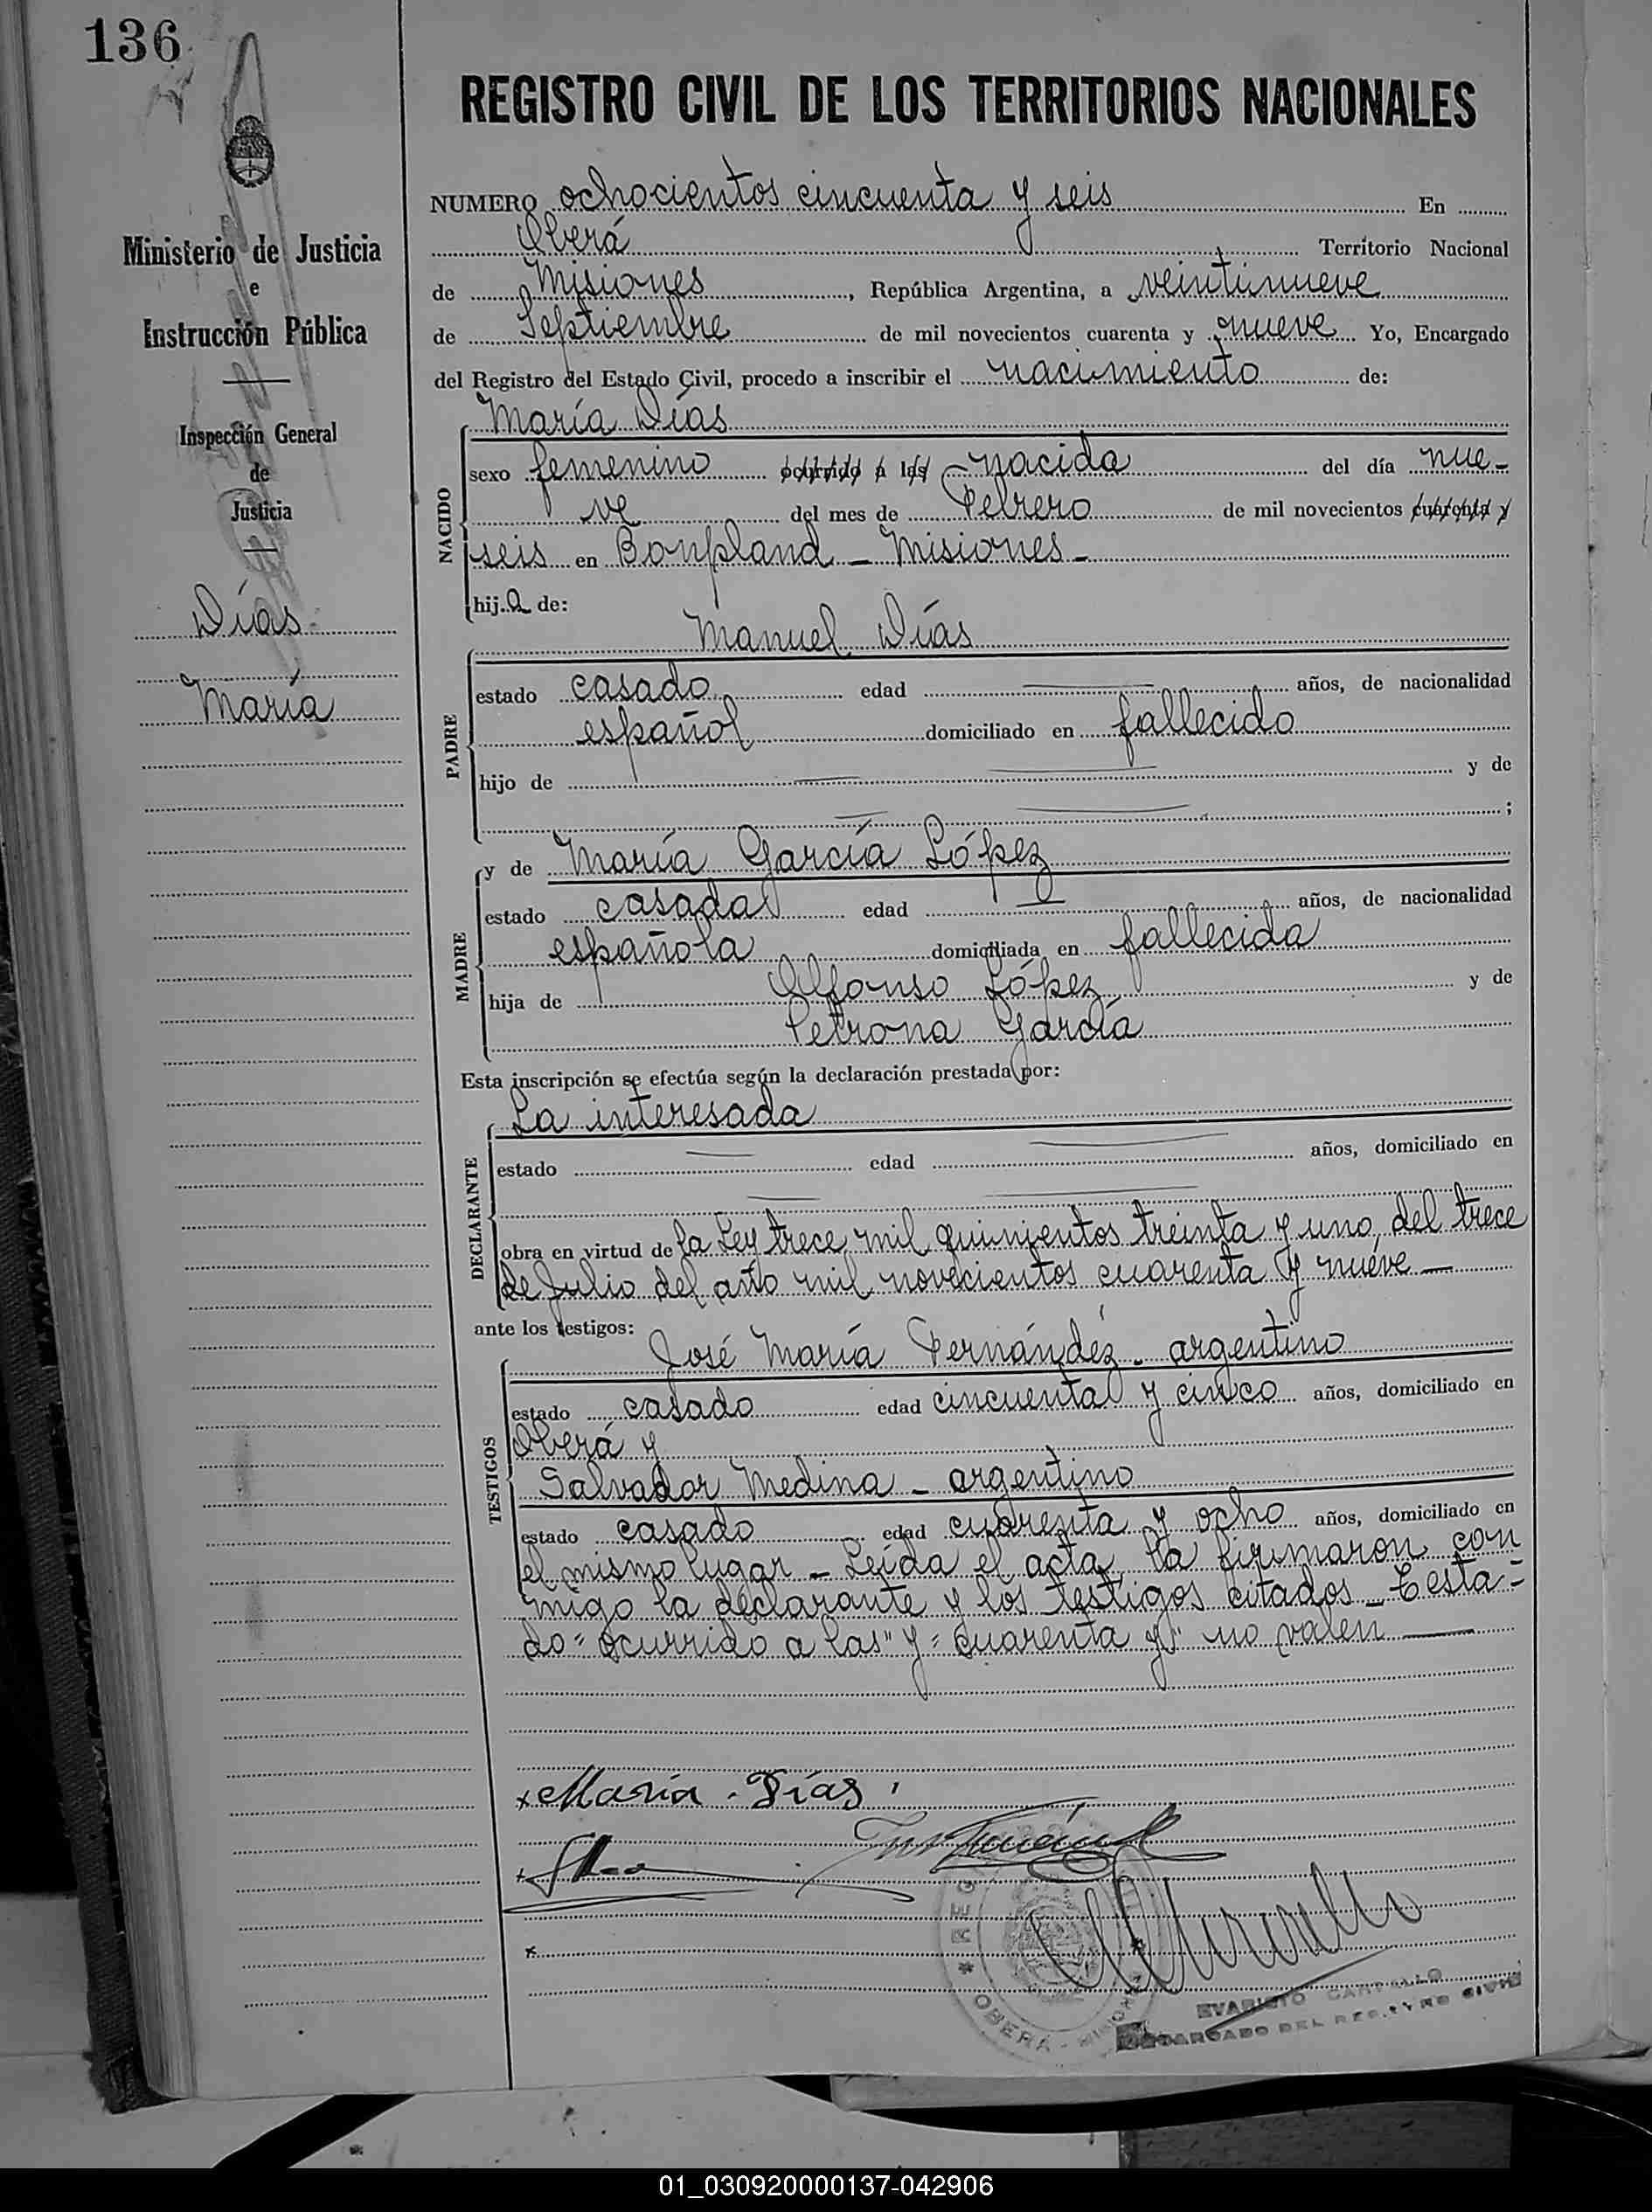 136
REGISTRO CIVIL DE LOS TERRITORIOS NACIONALES
Ministerio de Justicia
e
Instrucción Pública
Inspección General
de
Justicia
Días
María
NUMERO ochocientos cincuenta y seis En
Oberá Territorio Nacional
de Misiones, República Argentina, a veintinueve
de Septiembre de mil novecientos cuarenta y nueve Yo, Encargado
del Registro del Estado Civil, procedo a inscribir el nacimiento de:
NACIDO
María Días
sexo femenino ocurrido a las nacida del día nue-
ve del mes de Febrero de mil novecientos cuarenta y
seis en Bonpland - Misiones -
hija de:
PADRE
Manuel Días
estado casado edad años, de nacionalidad
español domiciliado en fallecido
hijo de y de
;
MADRE
y de María García López
estado casada edad años, de nacionalidad
española domiciliada en fallecida
hija de Alfonso López y de
Petrona García
Esta inscripción se efectúa según la declaración prestada por:
DECLARANTE
La interesada
estado edad años, domiciliado en
obra en virtud de la Ley trece mil quinientos treinta y uno, del trece
de Julio del año mil novecientos cuarenta y nueve -
ante los testigos:
TESTIGOS
José María Fernández - argentino
estado casado edad cincuenta y cinco años, domiciliado en
Oberá y
Salvador Medina - argentino
estado casado edad cuarenta y ocho años, domiciliado en
el mismo lugar - Leída el acta, la firmaron con
migo la declarante y los testigos citados - Testa=
do "ocurrido a las" y "cuarenta y" no valen
x María Días
REG
* OBERÁ - MISIONES
EVARISTO
ENCARGADO DEL REGISTRO CIVIL
01_030920000137-042906